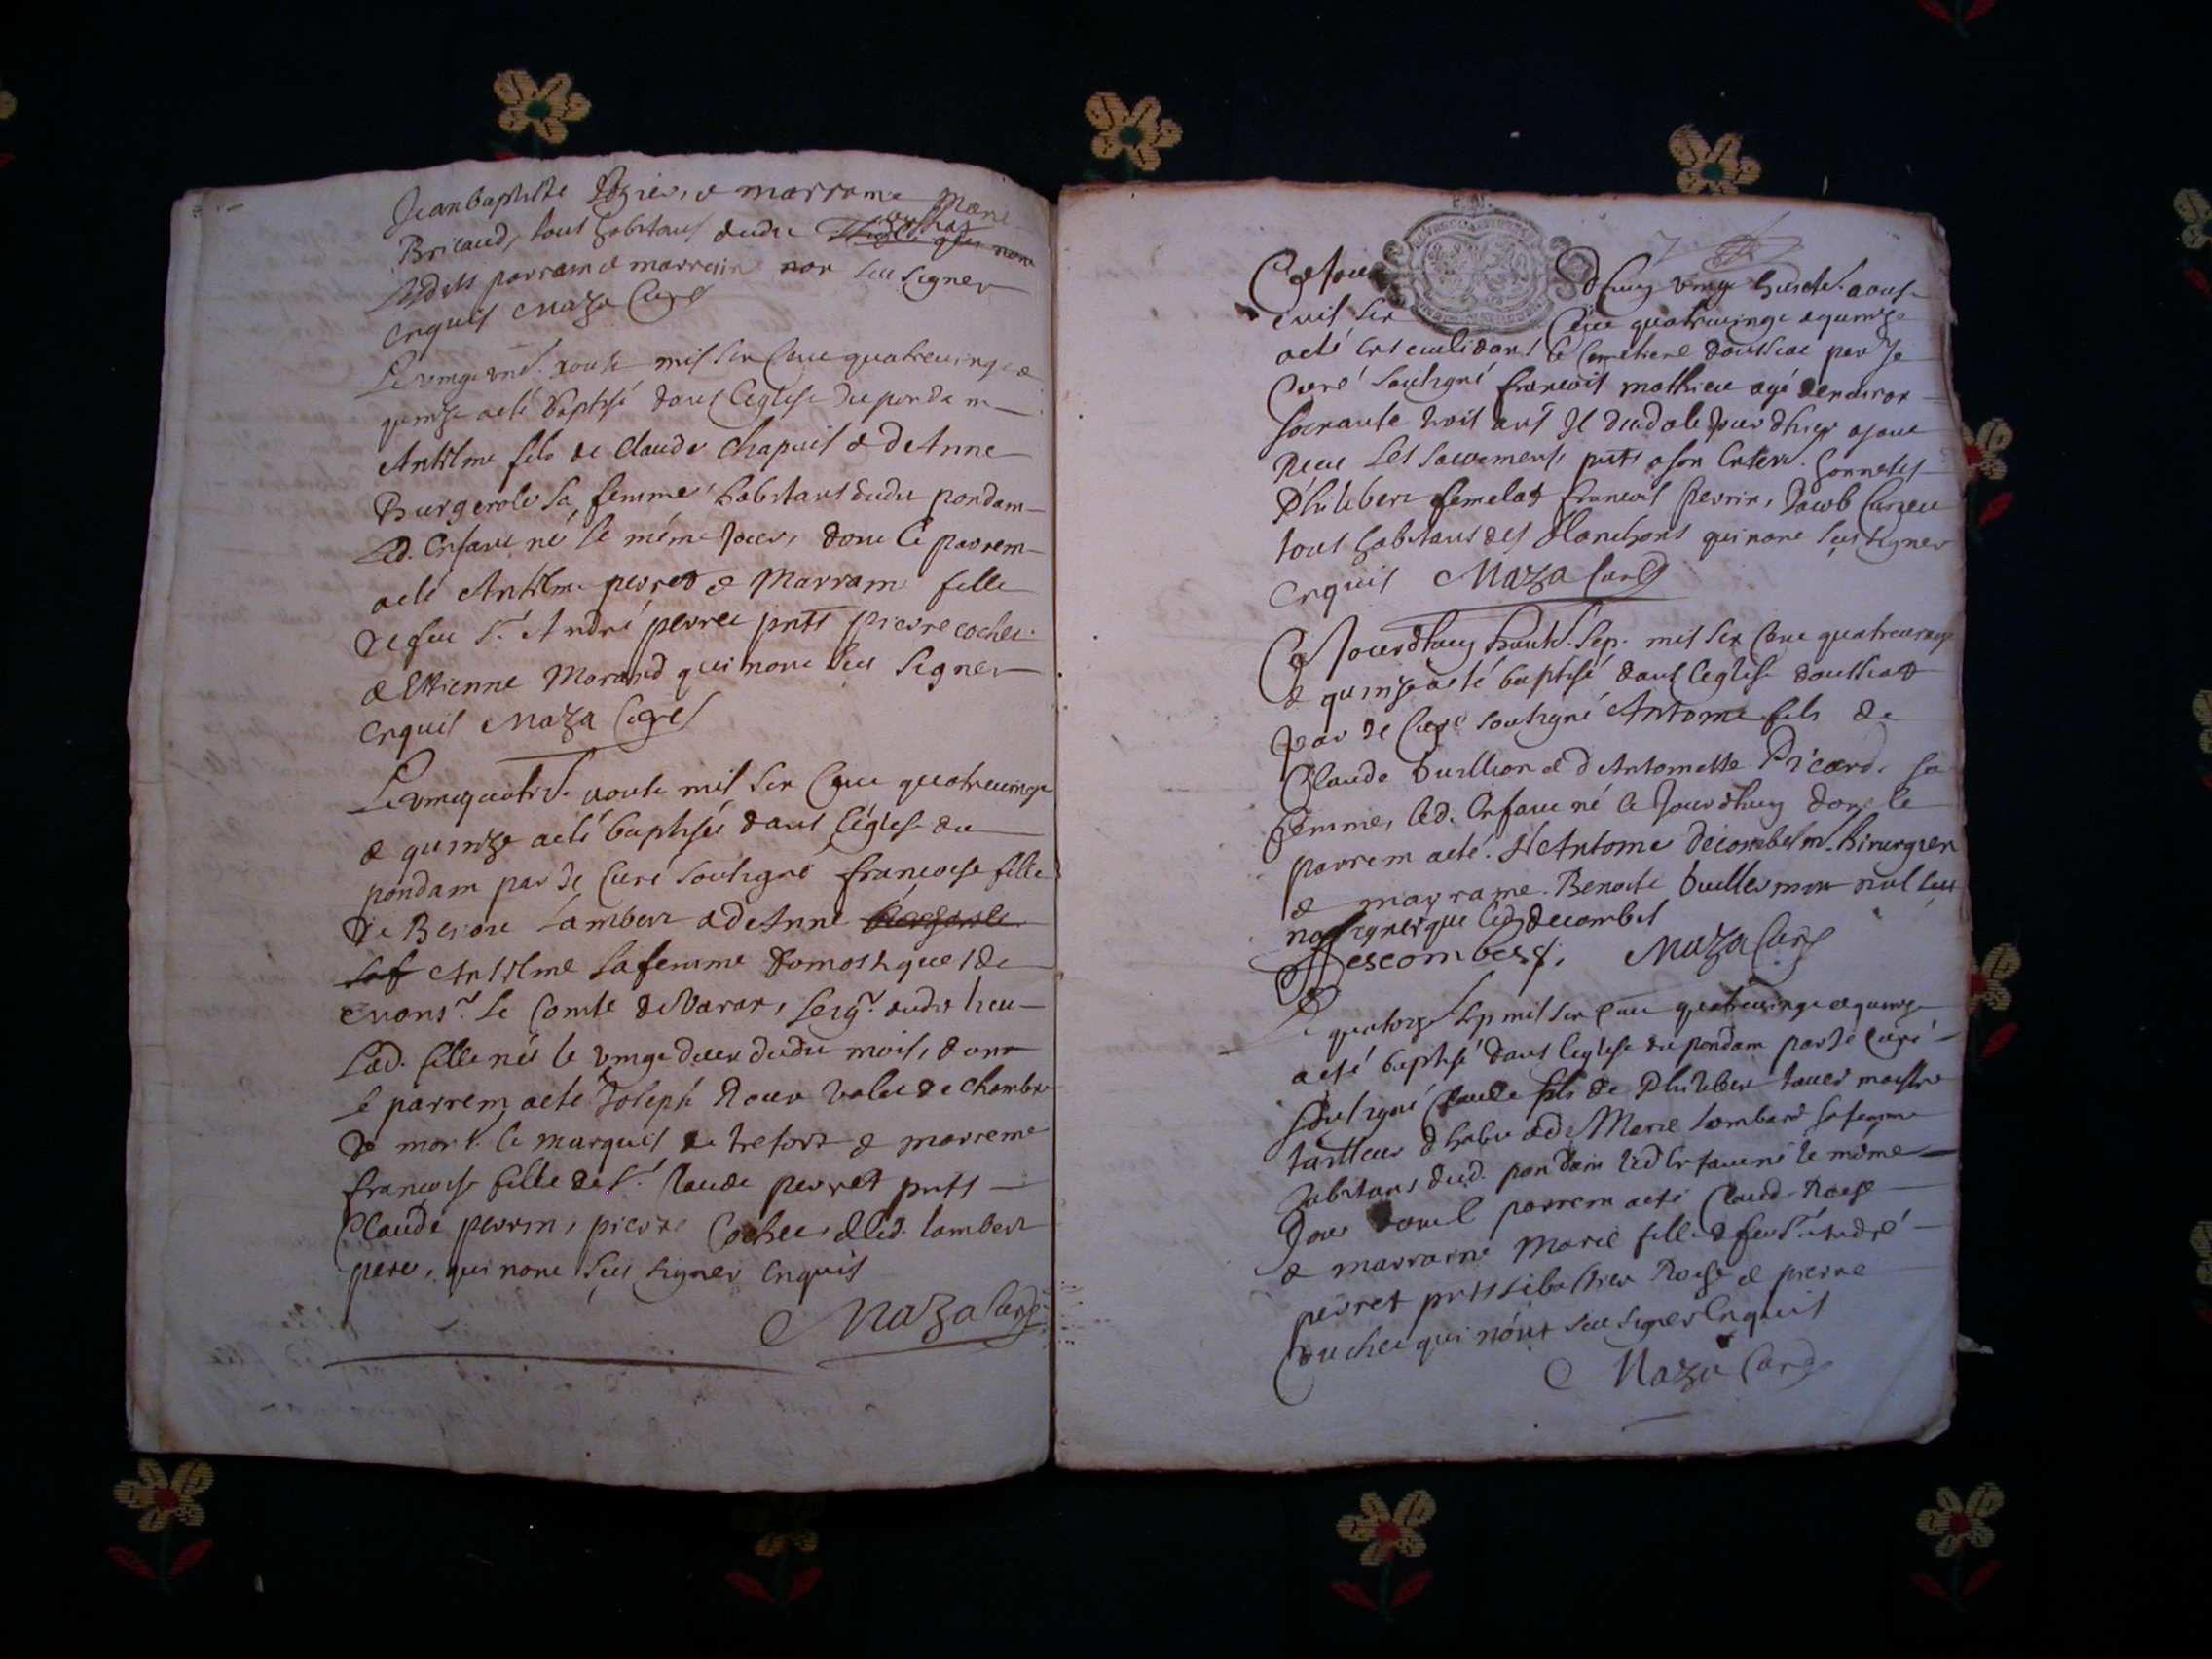 Jean baptiste Rozier, & marrame Marie
Bricaud, tous habitans dudit
Lesdits parram & marrain non sceu signer
enquis Maza Curé
Le vingt une aoust mil six cent quatrevingt &
quinze a eté baptisé dans l'eglise du pondam
Antelme fils de Claude Chapuis & d'Anne
Burgerole sa femme habitans dudit pondam
Led. enfant né le même jour, dont le parrem
a eté Antelme perret & Marram fille
de feu Sr. André perret pnts pierre cochet
& Ettienne Morand qui nont sceu signer
enquis Maza Curé
Le vingtquatre aoust mil six cent quatrevingt
& quinze a eté baptisée dans l'église du
pondam par Je Curé soubsigné francoise fille
de Benoit Lambert & d'Anne
Antelme sa femme domestiques de
Monsr. le Comte de Varax, seigr. dudit lieu
Lad. fille née le vingt deux dudit mois, dont
le parrem a eté Joseph Roux valet de chambre
de monsr. le marquis de trefort & marreme
francoise fille de Sr. Claude perret pnts
Claude perrin, pierre Cochet, & led. lambert
pere, qui nont sceu signer enquis
Maza Curé
Ce jour dhuy vingt huict aoust
mil six Cent quatrevingt & quinze
a eté enseveli dans le Cemetiere doussiat par Je
Curé soubsigné francois mathieu agé denviron
soixante trois ans Il deceda le jour dhier ayant
Receu les sacrements pnts a son enterr. honnetes
Philibert femelat francois perrin, Jacob
tous habitans des blanchons qui nont sceu signer
enquis Maza Curé
Ce Jourdhuy huict Sep. mil six Cent quatrevingt
& quinze a eté baptisé dans l'eglise doussiat
par Je Curé soubsigné Antome fils de
Claude buillion & d'Antomette Picard sa
femme, led. enfant né ce Jourdhuy dont le
parrem a eté. Sr Antome decombes mr. hirurgien
& marrame. Benoite buillermon nul sceu
signer que led. decombes
Descombes. Maza Curé
Le quatorze Sep mil six cent quatrevingt & quinze
a eté baptisé dans l'eglise du pondam par Je Curé
soubsigné Claude fils de Philibert maistre
tailleur d'habit & de Marie lombard sa femme
habitans dud. pondam led enfant né le même
Jour parrem a eté Claude Roze
& marrame Marie fille de feu Sr André
perret pnts sebastien Roze & pierre
Couchet qui nont sceu signer enquis
Maza Curé